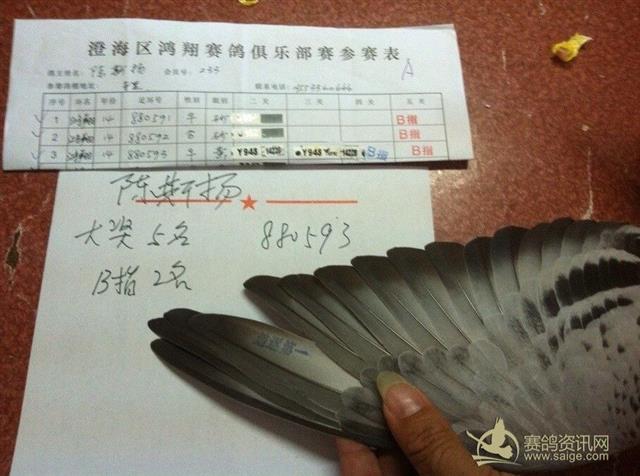 澄海区鸿翔赛鸽俱乐部赛参赛表
鸽主姓名: 陈斯扬 会员号: 233 A
参赛鸽棚地址: 联系电话:
序号 环名 年份 足环号 性别 羽色 二关 三关 四关 五关
1 14 880591 B指
2 14 880592 B指
3 14 880593 Y948 Y948 B指 B指
陈斯扬
大奖5名 880593
B指2名
赛鸽资讯网
www.saige.com